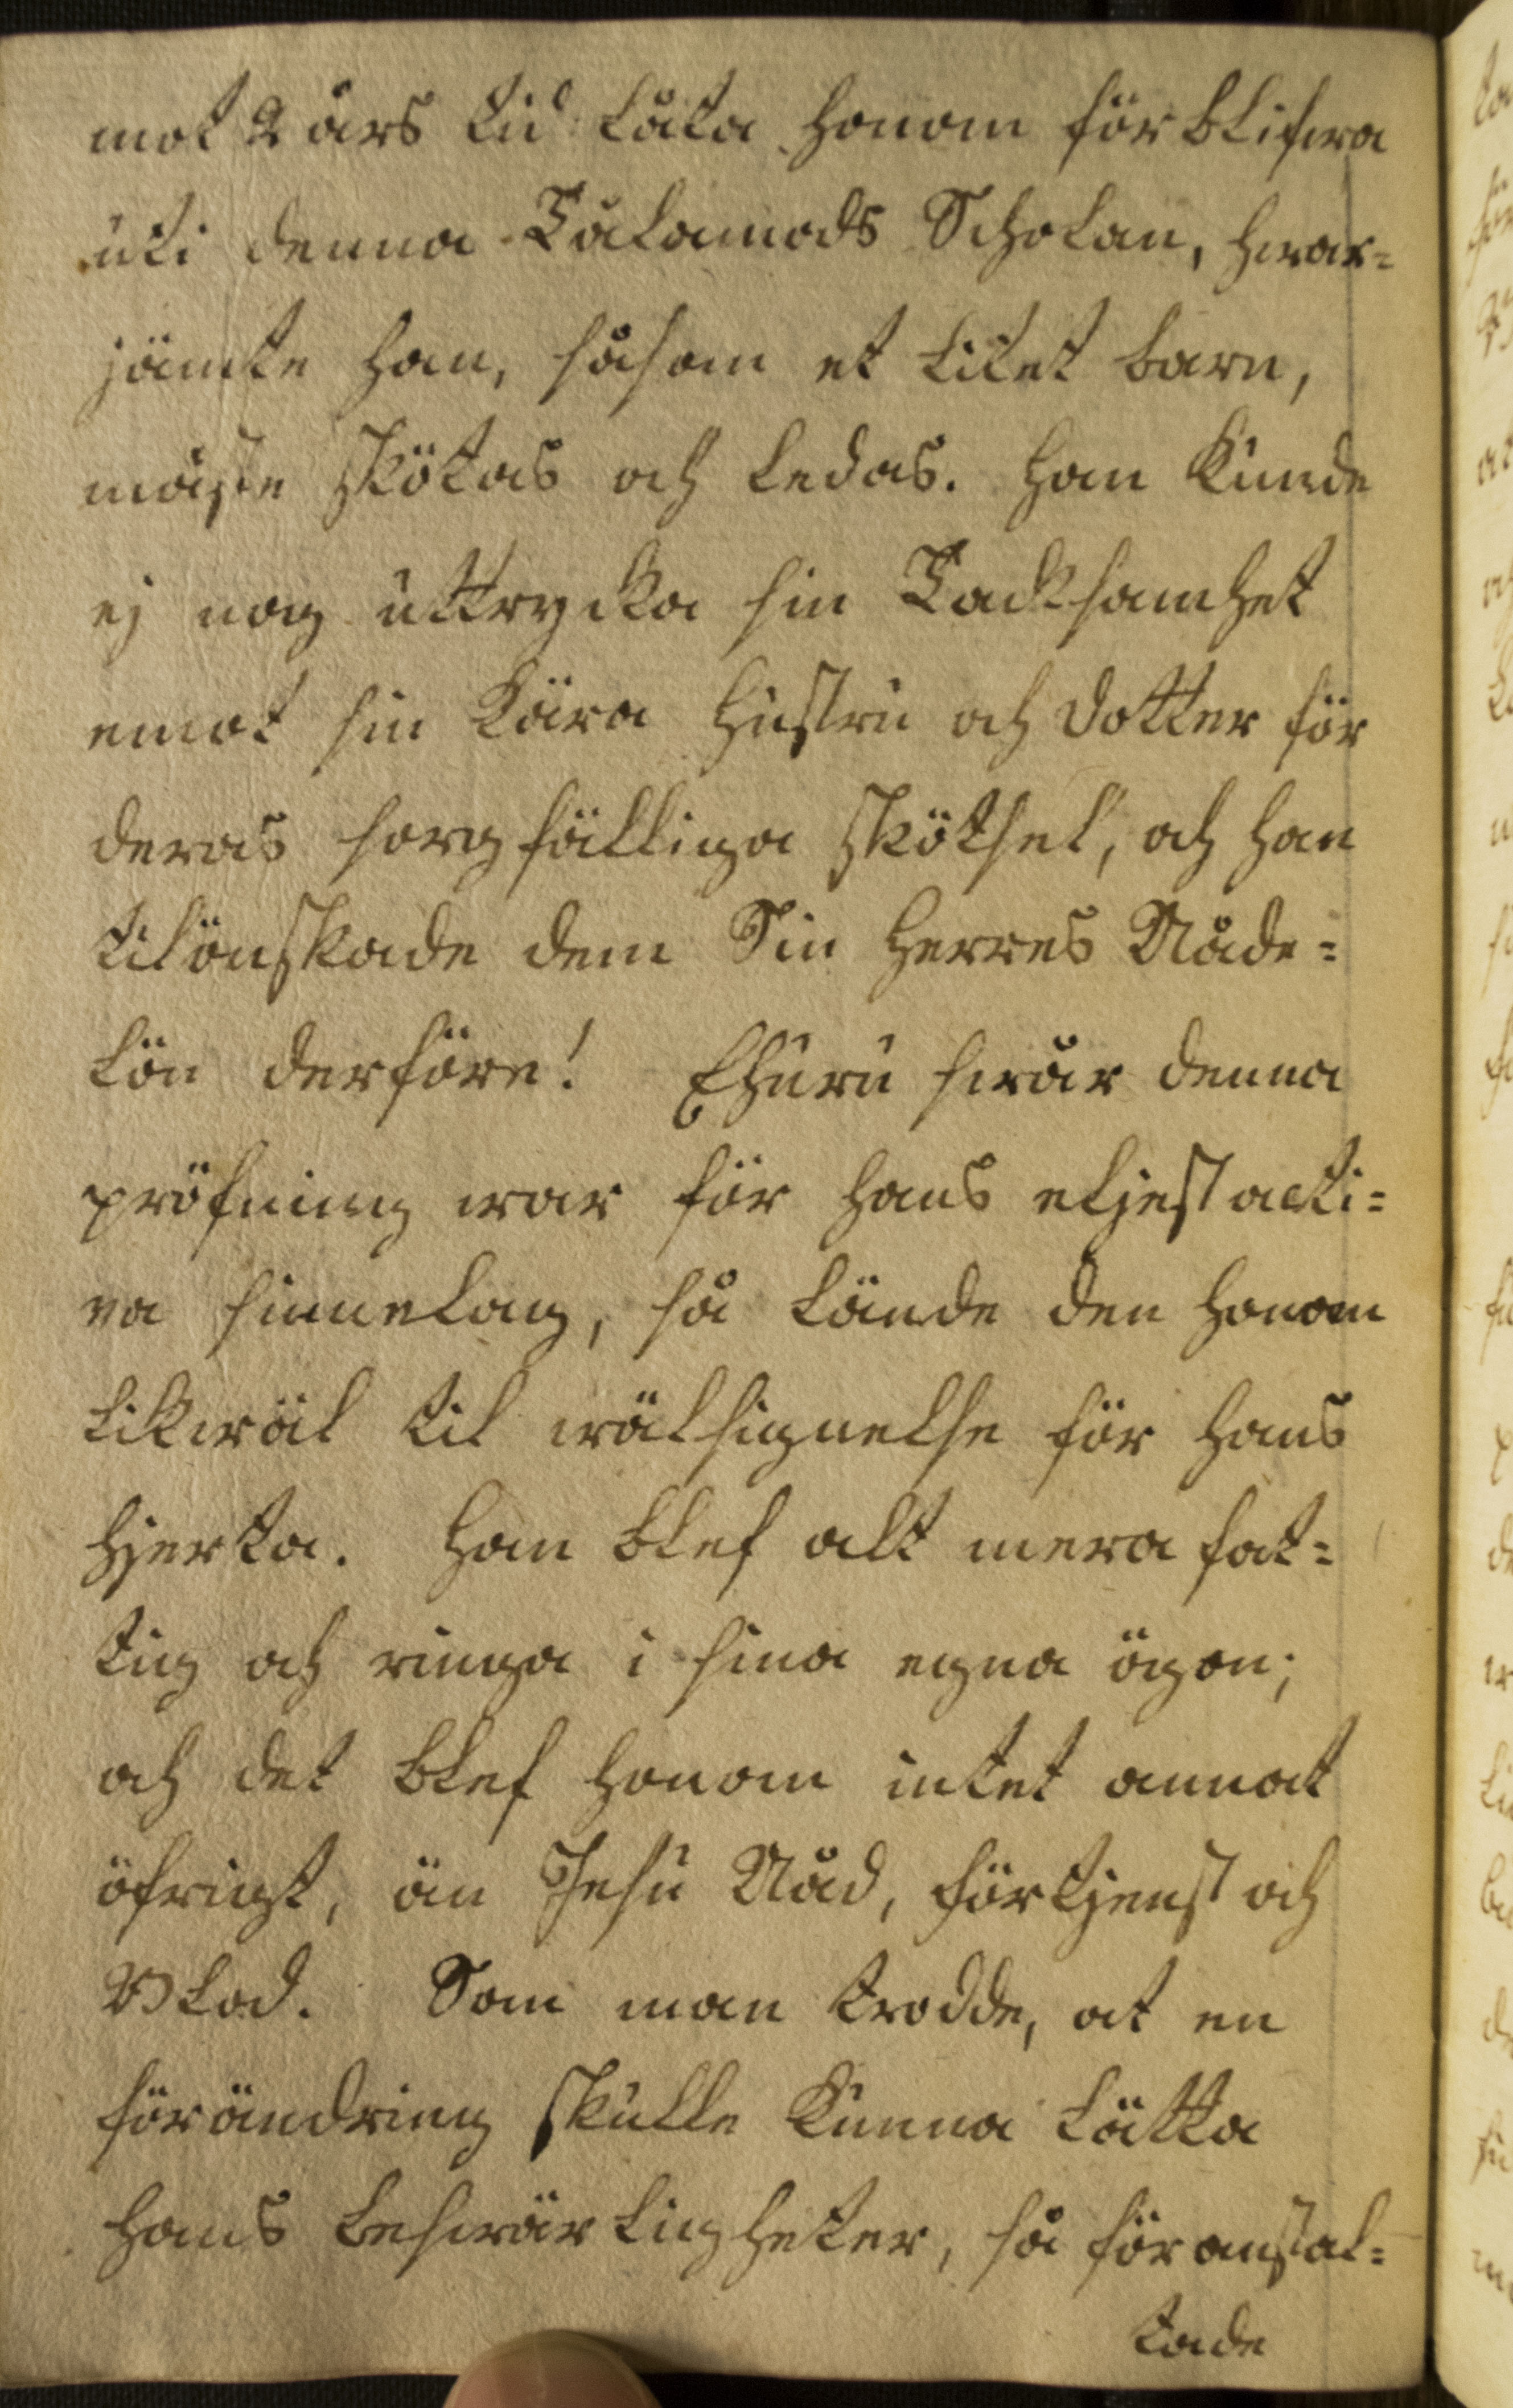 mot 2 års tid låta honom förblifwa
uti denna Tålamods Scholan, hwar=
jämte han, såsom et litet barn,
måste skötas och ledas. Han kunde
ej nog uttrycka sin Tacksamhet
emot sin kära Hustru och Dotter för
deras sorgfälliga skötsel, och han
tilönskade dem Sin Herres Nåde=
lön derföre! Ehuru swår denna
pröfning war för hans eljest acti=
va sinnelag, så lände den honom
likwäl til wälsignelse för hans
hjerta. Han blef alt mera fat=
tig och ringa i sina egna ögon;
och det blef honom intet annat
öfrigt, än Jesu Nåd, förtjenst och
Blod. Som man trodde, at en
förändring skulle kunna lätta
hans beswärligheter, så föranstal=
tade